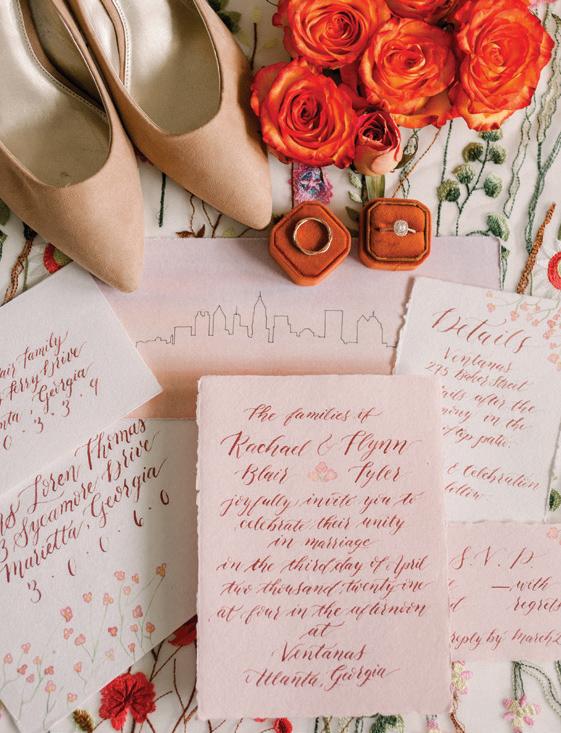 lair Family
Perry Drive
nta, Georgia
0 . 3 . 3 . 9
Loren Thomas
3 Sycamore Drive
Marietta, Georgia
3 . 0 . 0 . 6 . 0
The families of
Rachael & Flynn
Blair Tyler
joyfully invite you to
celebrate their unity
in marriage
on the third day of April
two thousand twenty one
at four in the afternoon
at
Ventanas
Atlanta, Georgia
Details
Ventanas
275 Baker Street
ails after the
ony in the
top patio.
& Celebration
follow.
S.V.P.
with
regrets
reply by March 2